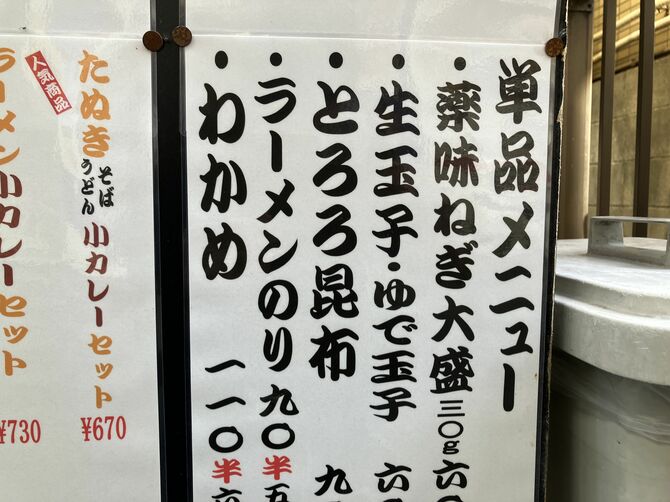 単品メニュー
・薬味ねぎ大盛三〇g六〇
・生玉子・ゆで玉子 六〇
・とろろ昆布 九
・ラーメンのり九〇半五
・わかめ 一一〇半六
たぬきそばうどん小カレーセット
¥670
人気商品
ラーメン小カレーセット
¥730